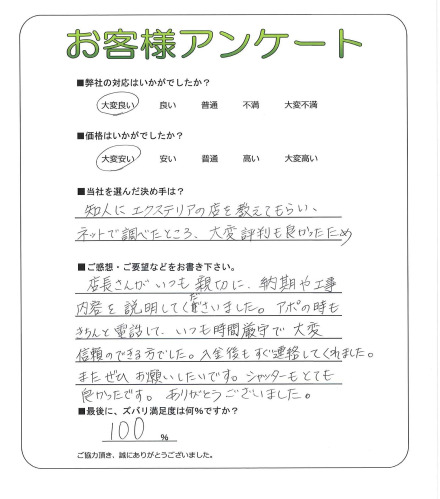 お客様アンケート
■弊社の対応はいかがでしたか？
大変良い 良い 普通 不満 大変不満
■価格はいかがでしたか？
大変安い 安い 普通 高い 大変高い
■当社を選んだ決め手は？
知人にエクステリアの店を教えてもらい、
ネットで調べたところ、大変評判も良かったため
■ご感想・ご要望などをお書き下さい。
店長さんがいつも親切に、納期や工事
内容を説明してくださいました。アポの時も
きちんと電話して、いつも時間厳守で大変
信頼のできる方でした。入金後もすぐ連絡してくれました。
またぜひお願いしたいです。シャッターもとても
良かったです。ありがとうございました。
■最後に、ズバリ満足度は何%ですか？
100 %
ご協力頂き、誠にありがとうございました。